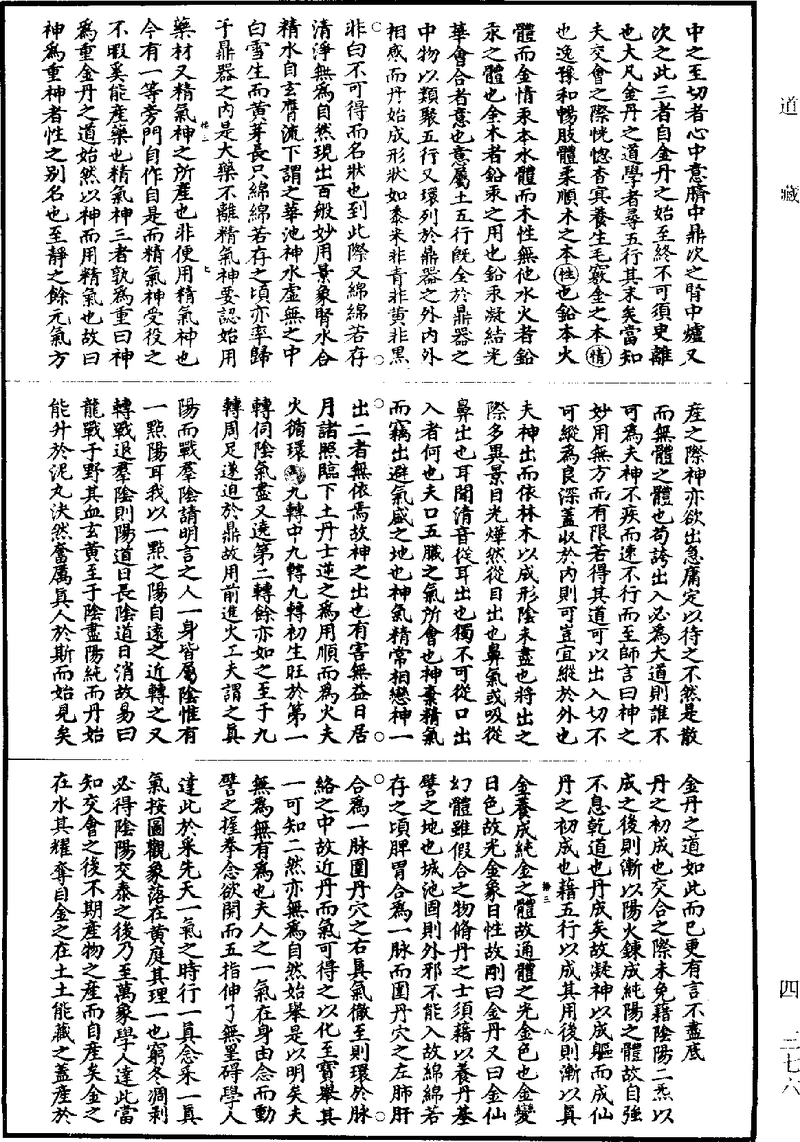 道藏
中之至切者心中意臍中鼎次之腎中爐又
次之此三者自金丹之始至終不可須臾離
也大凡金丹之道學者尋五行其末矣當知
夫交會之際恍惚杳冥養生毛竅金之本情
也逸豫和暢肢體柔順木之本性也鉛本火
體而金情汞本水體而木性無他水火者鉛
汞之體也金木者鉛汞之用也鉛汞凝結光
華會合者意也意屬土五行旣全於鼎器之
中物以類聚五行又環列於鼎器之外內外
相感而丹始成形狀如黍米非青非黃非黑
非白不可得而名狀也到此際又綿綿若存
清淨無爲自然現出百般妙用景象腎水合
精水自玄膺流下謂之華池神水虛無之中
白雪生而黃芽長只綿綿若存之頃亦率歸
于鼎器之內是大藥不離精氣神要認始用
藥材又精氣神之所產也非便用精氣神也
今有一等旁門自作自是而精氣神受役之
不暇奚能產藥也精氣神三者孰爲重曰神
爲重金丹之道始然以神而用精氣也故曰
神爲重神者性之別名也至靜之餘元氣方
產之際神亦欲出急庸定以待之不然是散
而無體之體也苟誇出入必爲大道則誰不
可爲夫神不疾而速不行而至師言曰神之
妙用無方而有限若得其道可以出入切不
可縱爲良深蓋收於內則可豈宜縱於外也
夫神出而依林木以成形陰未盡也將出之
際多異景目光燁然從目出也鼻氣或吸從
鼻出也耳聞清音從耳出也獨不可從口出
入者何也夫口五臟之氣所會也神棄精氣
而竊出避氣盛之地也神氣精常相戀神一
出二者無依焉故神之出也有害無益日居
月諸照臨下土丹士逆之爲用順而爲火夫
火循環九轉中九轉九轉初生旺於第一
轉伺陰氣盡又遶第二轉餘亦如之至于九
轉周足遂迫於鼎故用前進火工夫謂之真
陽而戰羣陰請明言之人一身皆屬陰惟有
一點陽耳我以一點之陽自遠之近轉之又
轉戰退羣陰則陽道日長陰道日消故易曰
龍戰于野其血玄黃至于陰盡陽純而丹始
能升於泥丸決然奮厲真人於斯而始見矣
金丹之道如此而已更有言不盡底
丹之初成也交合之際未免藉陰陽二炁以
成之後則漸以陽火鍊成純陽之體故自強
不息乾道也丹成矣故凝神以成軀而成仙
丹之初成也藉五行以成其用後則漸以真
金養成純金之體故通體之光金色也金變
日色故光金象日性故剛曰金丹又曰金仙
幻體雖假合之物脩丹之士須藉以養丹基
譬之地也城池固則外邪不能入故綿綿若
存之頃脾胃合爲一脉而圍丹穴之左肺肝
合爲一脉圍丹穴之右真氣徹至則環於脉
絡之中故近丹而氣可得之以化至寶舉其
一可知二然亦無爲自然始舉是以明矣夫
無爲無有爲也夫人之一氣在身由念而動
譬之握拳念欲開而五指伸了無罣碍學人
達此於采先天一氣之時行一真念采一真
氣按圖觀象落在黃庭其理一也窮冬凋剝
必得陰陽交泰之後乃至萬象學人達此當
知交會之後不期產物之產而自產矣金之
在水其耀奪目金之在土土能藏之蓋產於
四 三七六